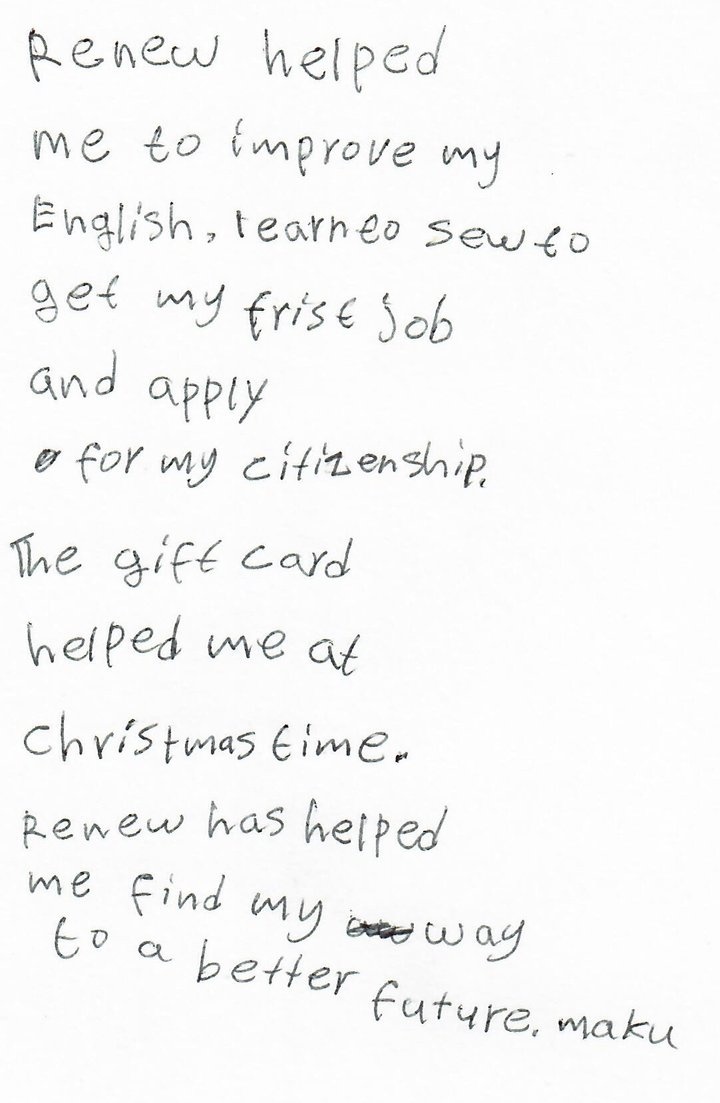 Renew helped
me to improve my
English, learn to sew to
get my frist job
and apply
for my citizenship.
The gift card
helped me at
Christmas time.
Renew has helped
me find my way
to a better
future. maku